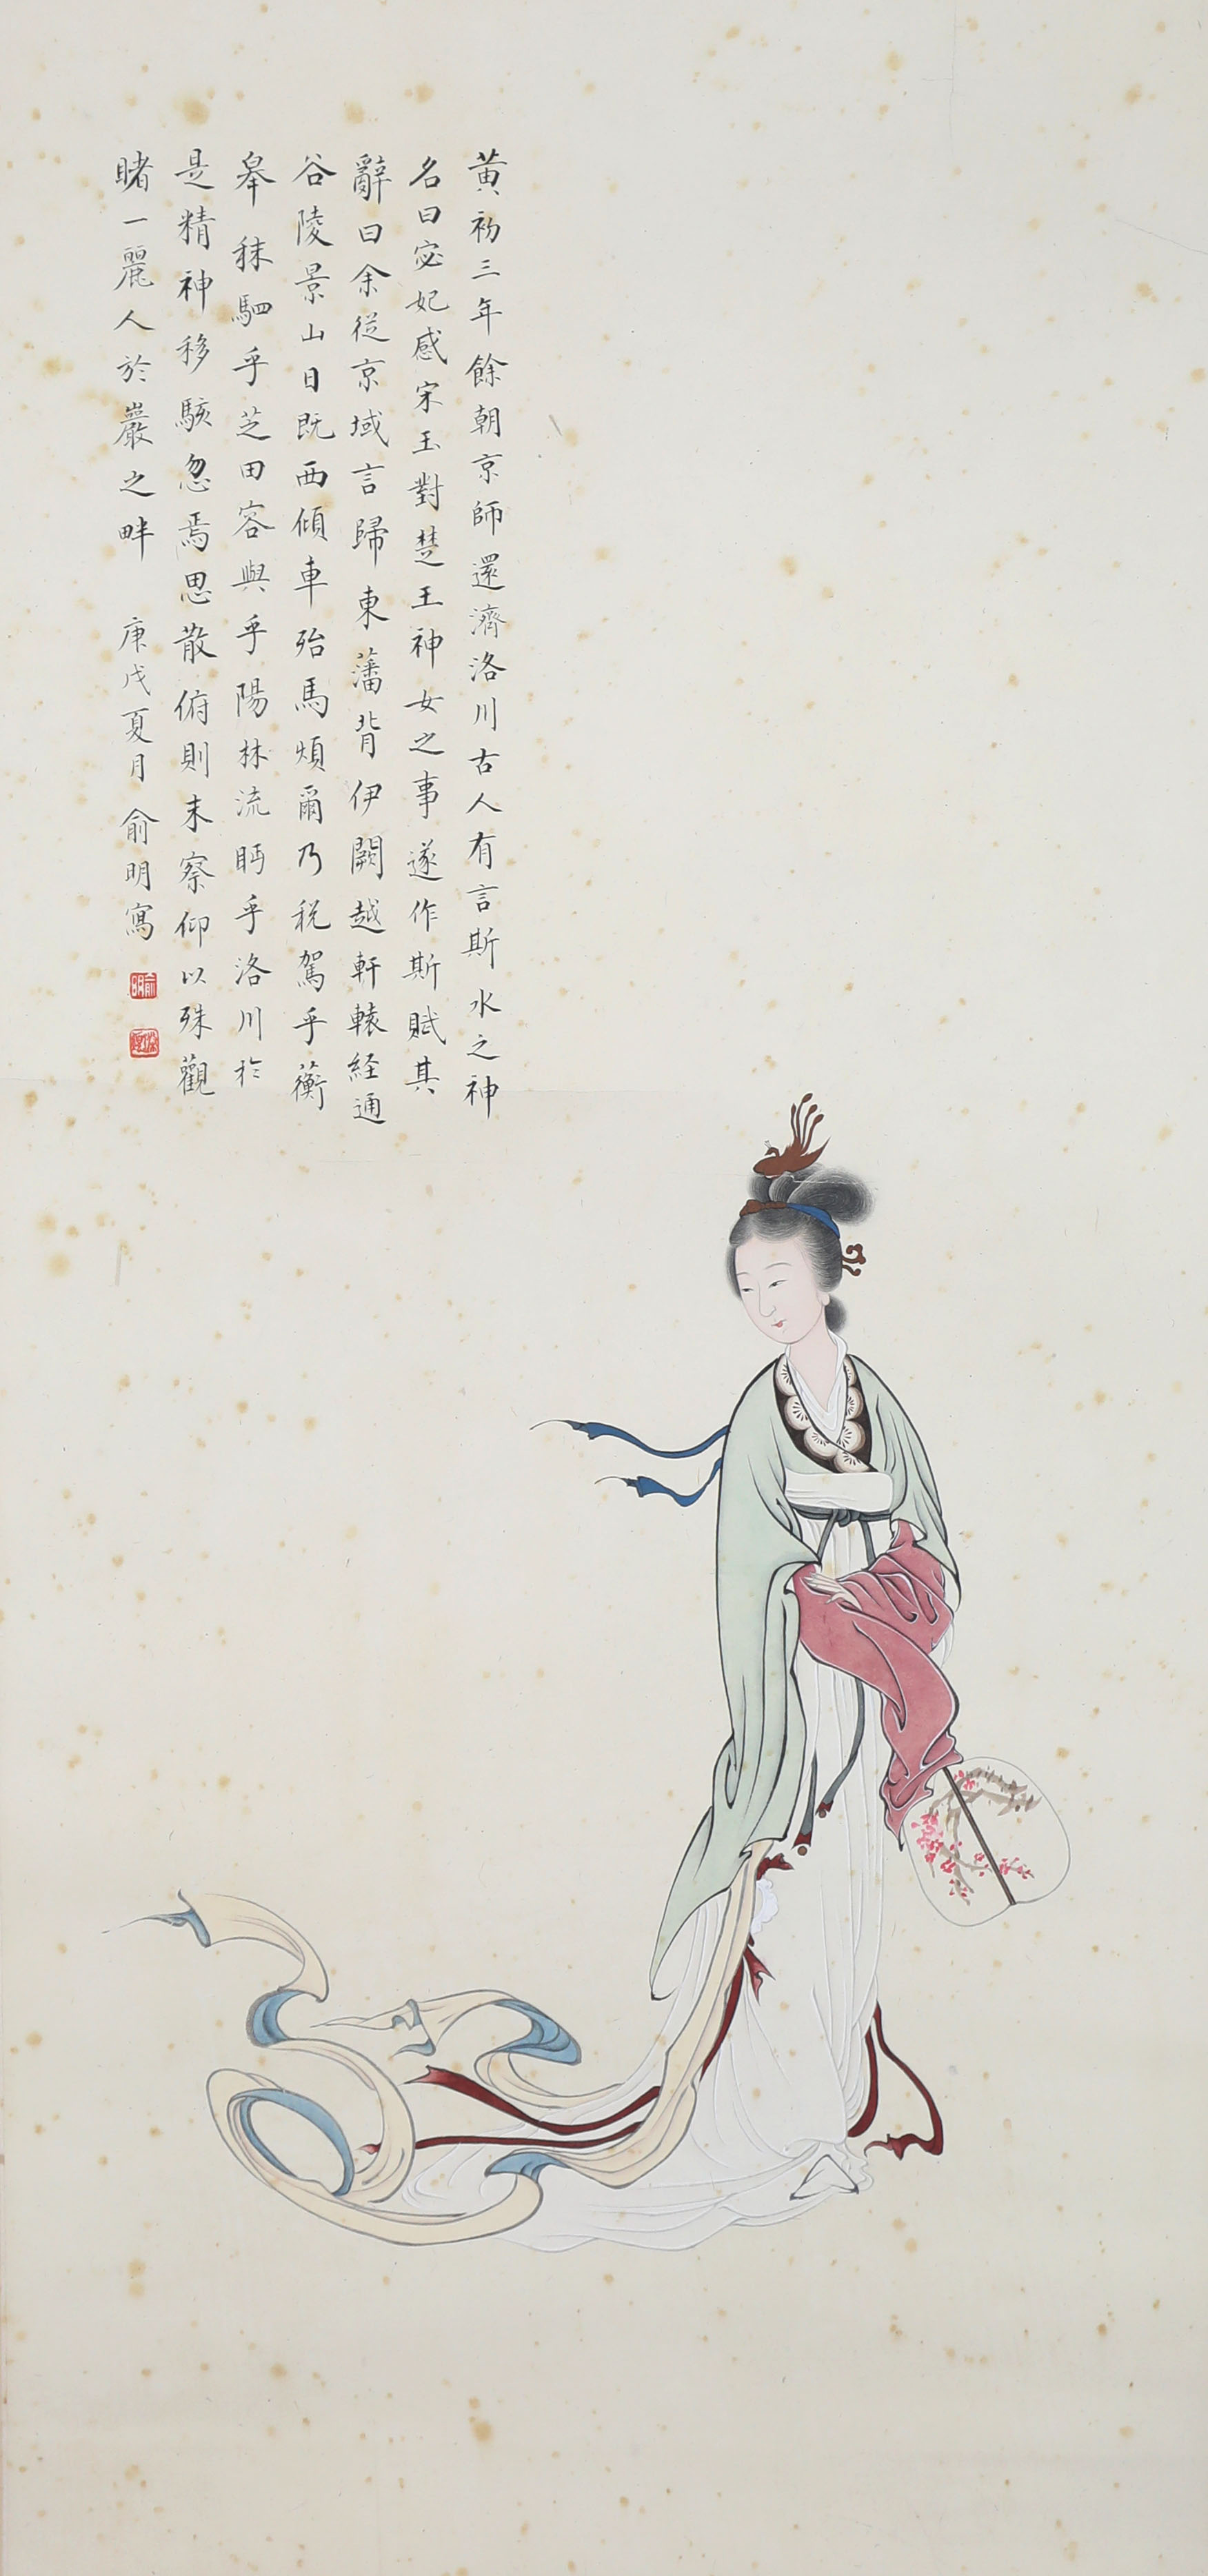 黄初三年餘朝京師還濟洛川古人有言斯水之神
名曰宓妃感宋玉對楚王神女之事遂作斯賦其
辭曰余從京域言歸東藩背伊闕越轘轅経通
谷陵景山日既西傾車殆馬煩爾乃税駕乎蘅
皋秣駟乎芝田容與乎陽林流眄乎洛川於
是精神移駭忽焉思散俯則未察仰以殊觀
睹一麗人於巖之畔
庚戌夏月俞明寫
俞明